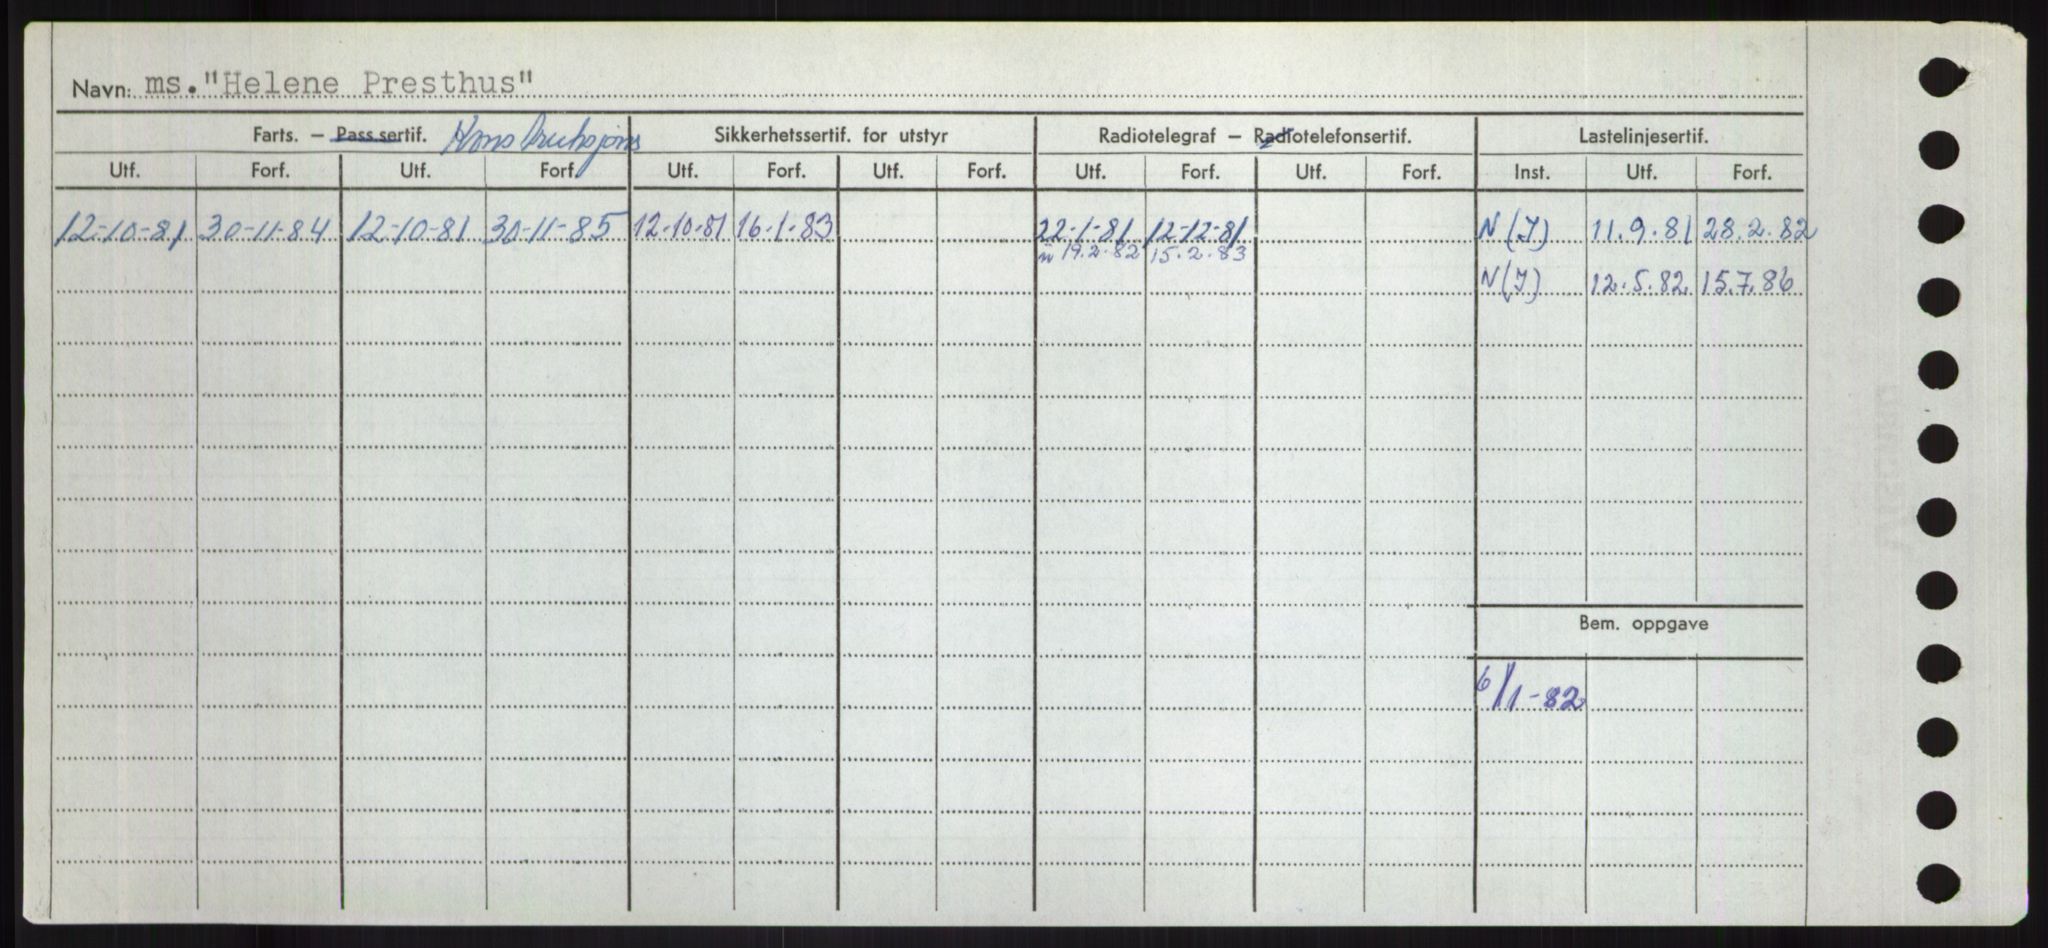 Navn: ms. "Helene Presthus"
Farts. – Pass.sertif. Konstruksjons Sikkerhetssertif. for utstyr Radiotelegraf – Radiotelefonsertif. Lastelinjesertif.
Utf. Forf. Utf. Forf. Utf. Forf. Utf. Forf. Utf. Forf. Utf. Forf. Inst. Utf. Forf.
12-10-81 30-11-84 12-10-81 30-11-85 12-10-81 16.1.83 22-1-81 12-12-81 N(I) 11.9.81 28.2.82
19.2.82 15.2.83
N(I) 12.5.82 15.7.86
Bem. oppgave
6/1-82